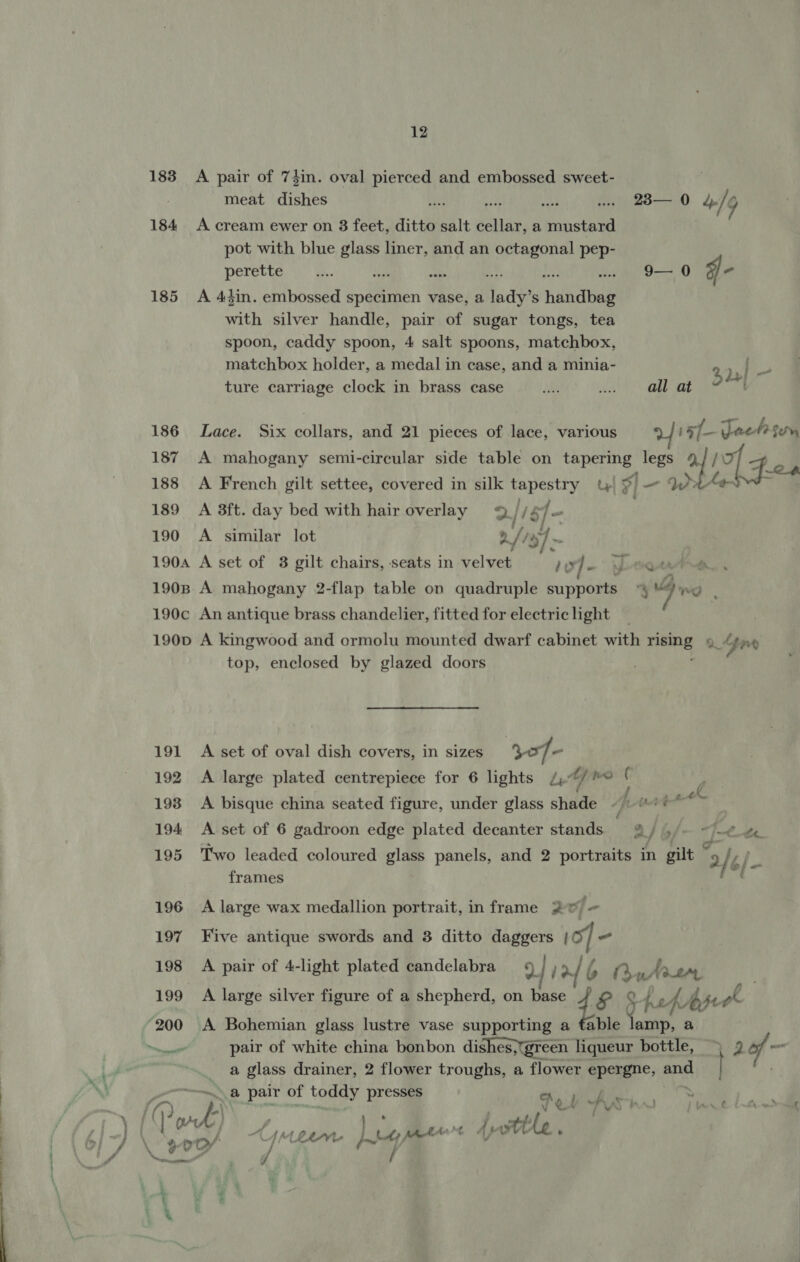 12
183 A pair of 7½in. oval pierced and embossed sweet-
meat dishes .... .... .... .... 23— 0 4/9
184 A cream ewer on 3 feet, ditto salt cellar, a mustard
pot with blue glass liner, and an octagonal pep-
perette .... .... .... .... .... .... 9— 0
185 A 4½in. embossed specimen vase, a lady's handbag
with silver handle, pair of sugar tongs, tea
spoon, caddy spoon, 4 salt spoons, matchbox,
matchbox holder, a medal in case, and a minia-
ture carriage clock in brass case .... .... all at
186 Lace. Six collars, and 21 pieces of lace, various 2/15/- Jackson
187 A mahogany semi-circular side table on tapering legs 2/10/
188 A French gilt settee, covered in silk tapestry
189 A 3ft. day bed with hair overlay 2/15/-
190 A similar lot 2/15/-
190A A set of 3 gilt chairs, seats in velvet 10/-
190B A mahogany 2-flap table on quadruple supports
190C An antique brass chandelier, fitted for electric light
190D A kingwood and ormolu mounted dwarf cabinet with rising
top, enclosed by glazed doors
191 A set of oval dish covers, in sizes 30/-
192 A large plated centrepiece for 6 lights
193 A bisque china seated figure, under glass shade
194 A set of 6 gadroon edge plated decanter stands
195 Two leaded coloured glass panels, and 2 portraits in gilt 2/6/-
frames
196 A large wax medallion portrait, in frame 20/-
197 Five antique swords and 3 ditto daggers 10/-
198 A pair of 4-light plated candelabra 2/12/6
199 A large silver figure of a shepherd, on base 48
200 A Bohemian glass lustre vase supporting a table lamp, a
pair of white china bonbon dishes, green liqueur bottle, 20/-
a glass drainer, 2 flower troughs, a flower epergne, and
a pair of toddy presses
Green liqueur bottle.